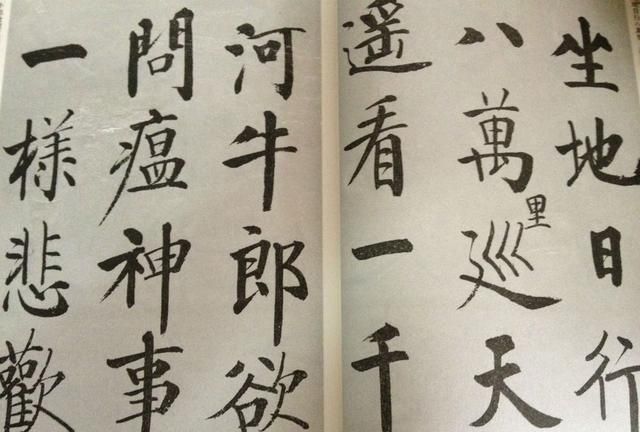 坐地日行
八萬里巡天
遥看一千
河牛郎欲
問瘟神事
一樣悲歡